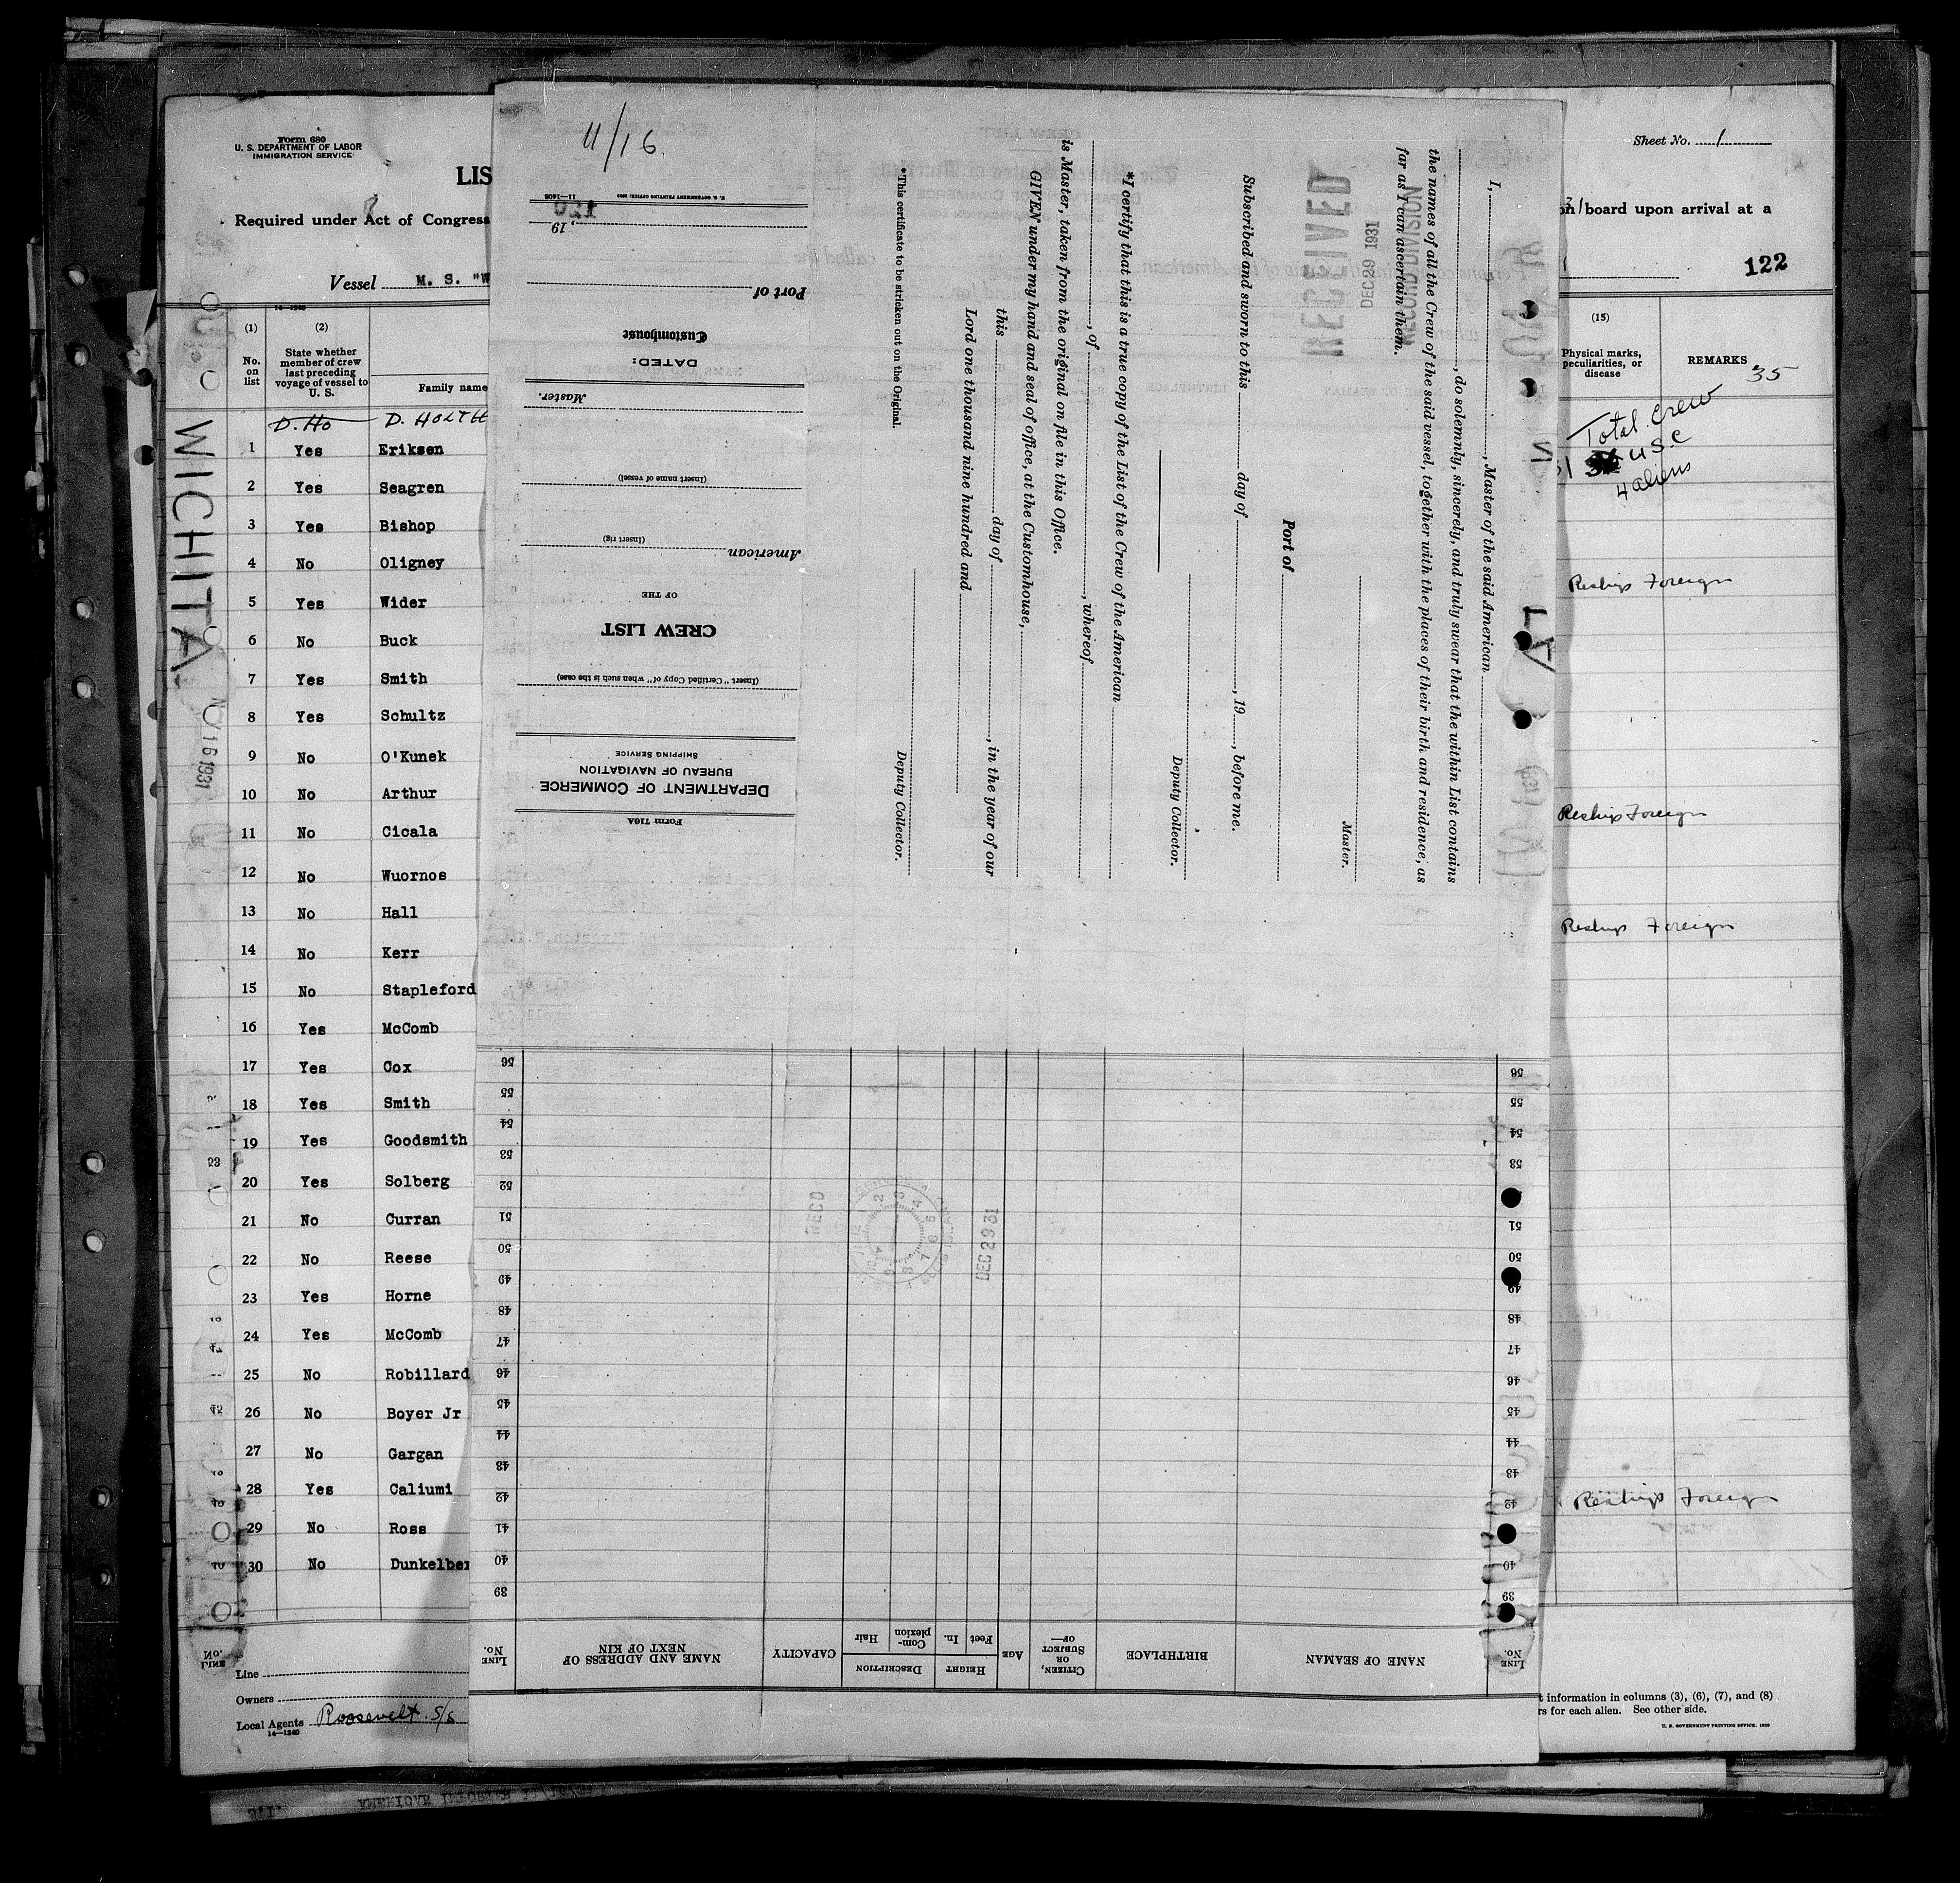 Form 680
U. S. DEPARTMENT OF LABOR
IMMIGRATION SERVICE
LIS
Required under Act of Congress
Vessel M. S. "W
14—1240
(1)
No. on list
(2)
State whether member of crew last preceding voyage of vessel to U. S.
Family name
D. Ho D. HOLTE
1 Yes Eriksen
2 Yes Seagren
3 Yes Bishop
4 No Oligney
5 Yes Wider
6 No Buck
7 Yes Smith
8 Yes Schultz
9 No O'Kunek
10 No Arthur
11 No Cicala
12 No Wuornos
13 No Hall
14 No Kerr
15 No Stapleford
16 Yes McComb
17 Yes Cox
18 Yes Smith
19 Yes Goodsmith
20 Yes Solberg
21 No Curran
22 No Reese
23 Yes Horne
24 Yes McComb
25 No Robillard
26 No Boyer Jr
27 No Gargan
28 Yes Caliumi
29 No Ross
30 No Dunkelber
Line
Owners
Local Agents Roosevelt S/S
14—1240
WICHITA
16 1931
11/16
Form 710A
DEPARTMENT OF COMMERCE
BUREAU OF NAVIGATION
SHIPPING SERVICE
(Insert "Certified Copy" when such is the case)
CREW LIST
OF THE
American
(Insert rig)
(Insert name of vessel)
Master.
DATED:
Customhouse
Port of
, 19
120
U. S. GOVERNMENT PRINTING OFFICE: 1929
11—1408
I, , Master of the said American
, do solemnly, sincerely, and truly swear that the within List contains
the names of all the Crew of the said vessel, together with the places of their birth and residence, as
far as I can ascertain them.
Master.
Port of
Subscribed and sworn to this day of , 19 , before me.
Deputy Collector.
*I certify that this is a true copy of the List of the Crew of the American
, of , whereof
is Master, taken from the original on file in this Office.
GIVEN under my hand and seal of office, at the Customhouse,
this day of , in the year of our
Lord one thousand nine hundred and
Deputy Collector.
*This certificate to be stricken out on the Original.
RECEIVED
DEC 29 1931
RECORD DIVISION
LINE No.
NAME OF SEAMAN
BIRTHPLACE
CITIZEN, OR SUBJECT OF—
AGE
HEIGHT
Feet
In.
DESCRIPTION
Complexion
Hair
CAPACITY
NAME AND ADDRESS OF NEXT OF KIN
LINE No.
39
40
41
42
43
44
45
46
47
48
49
50
51
52
53
54
55
56
REC'D
DEC 29 31
Sheet No. 1
on board upon arrival at a
122
(15)
Physical marks, peculiarities, or disease
REMARKS
35
Total Crew
31 USC
4 aliens
Reships Foreign
Reships Foreign
Reships Foreign
Reships Foreign
t information in columns (3), (6), (7), and (8)
rs for each alien. See other side.
U. S. GOVERNMENT PRINTING OFFICE. 1929